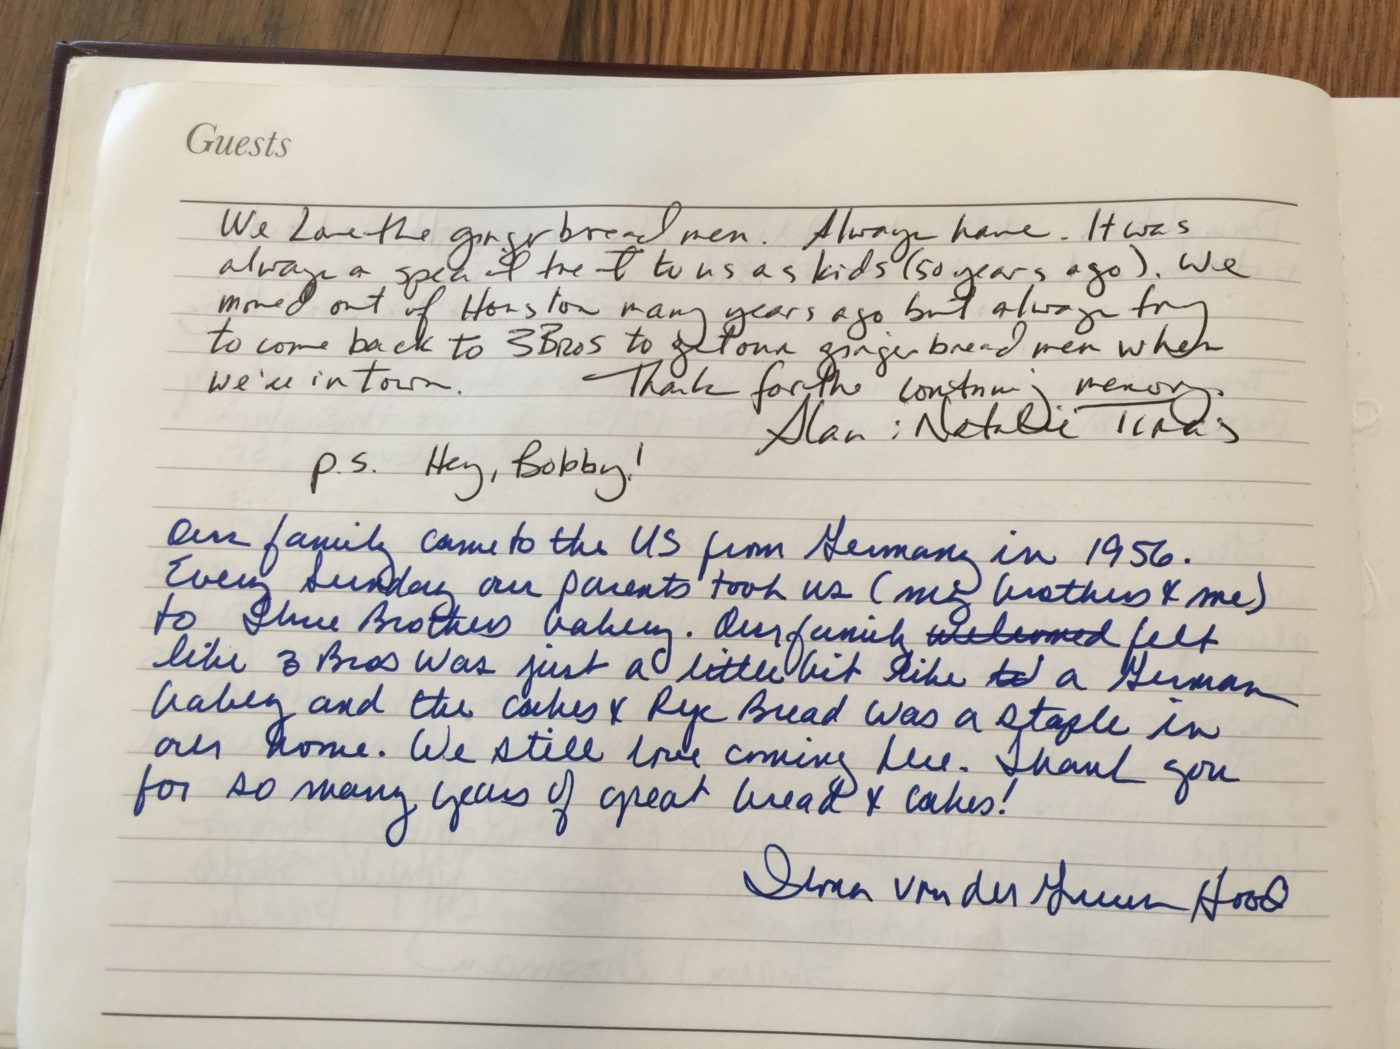 Guests
We Love the gingerbread men. Always have. It was
always a special treat to us as kids (50 years ago). We
moved out of Houston many years ago but always try
to come back to 3 Bros to get our gingerbread men when
we're in town. Thanks for the continuing memory.
Alan & Natalie
p.s. Hey, Bobby!
Our family came to the US from Germany in 1956.
Every Sunday our parents took us (my brothers & me)
to Three Brothers bakery. Our family welcomed felt
like 3 Bros was just a little bit like to a German
bakery and the cakes & Rye Bread was a staple in
our home. We still love coming here. Thank you
for so many years of great bread & cakes!
von der Hood